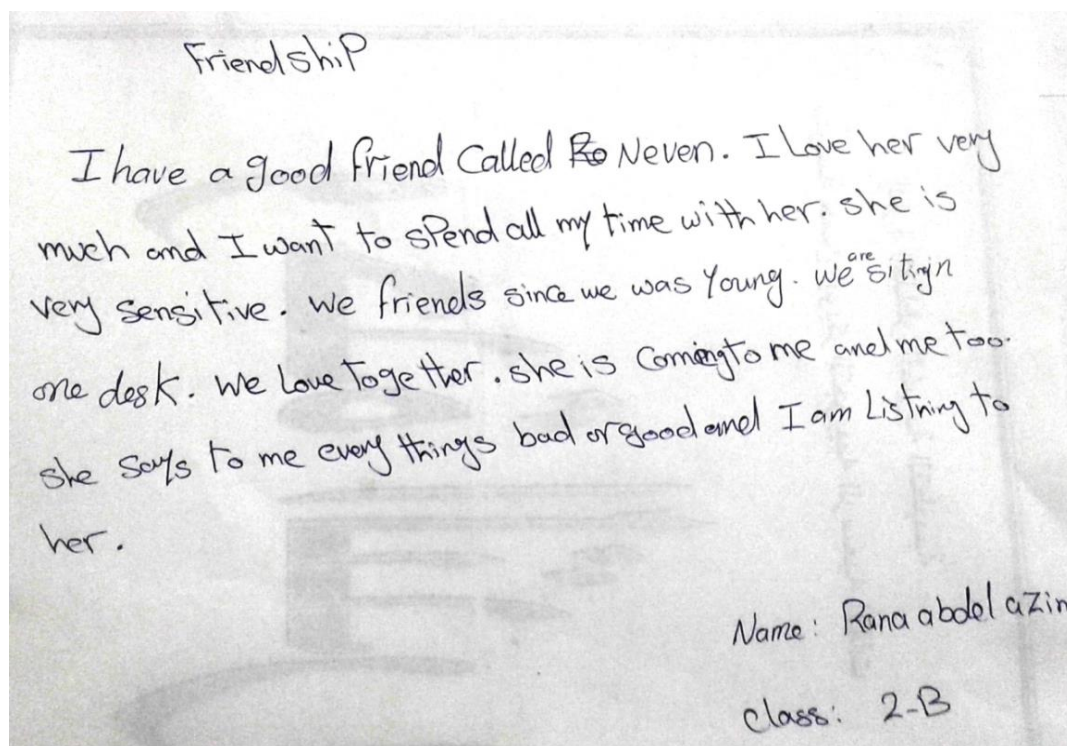 Friendship
I have a good friend Called Neven. I Love her very
much and I want to spend all my time with her. she is
very sensitive. we friends since we was Young. we are sitingn
one desk. we Love Together. she is Coming to me and me too.
she says to me every things bad or good and I am Listning to
her.
Name: Rana abdel azim
class: 2-B